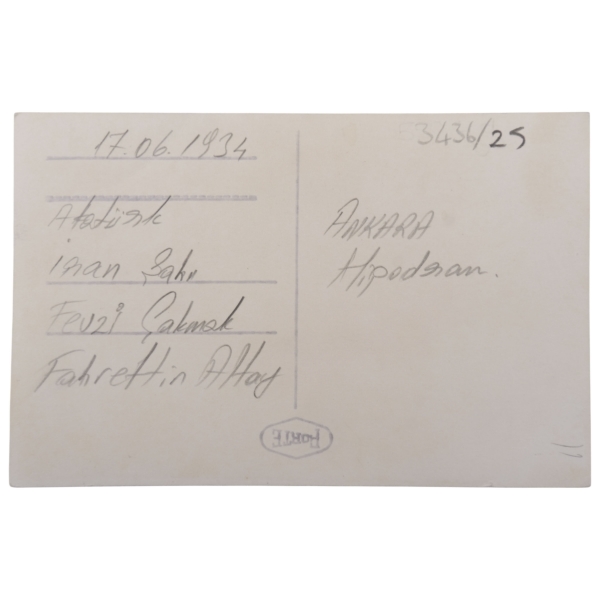 17.06.1934
3436/25
Atatürk
İran Şahı
Fevzi Çakmak
Fahrettin Altay
ANKARA
Hipodrom.